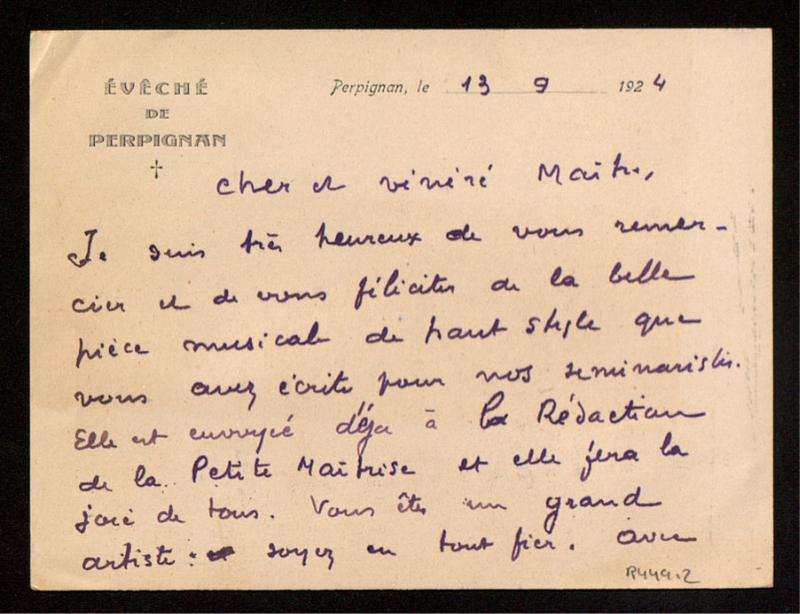 ÉVÊCHÉ
DE
PERPIGNAN
Perpignan, le 13 9 1924
Cher et vénéré Maître,
Je suis très heureux de vous remer-
cier et de vous féliciter de la belle
pièce musicale de haut style que
vous avez écrite pour nos seminaristes.
Elle est envoyé déjà à la Rédaction
de la Petite Maîtrise et elle fera la
joie de tous. Vous êtes un grand
artiste : soyez en tout fier. Avec
R449.2